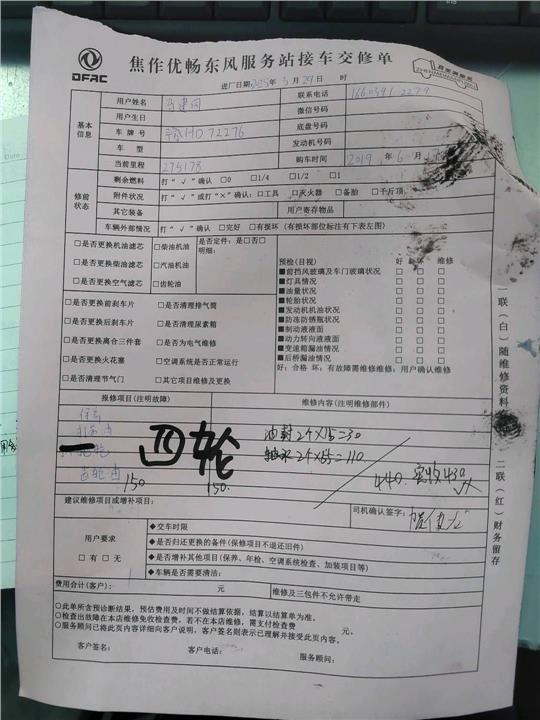 DFAC
焦作优畅东风服务站接车交修单
进厂日期2025年3月29日 时
基本信息
用户姓名 联系电话
用户生日 微信号码
车牌号 HD72276 底盘号码
车 型 发动机号码
当前里程 275178 购车时间 2019年6
修前状态
剩余燃料 打“√”确认 □0 □1/4 □1/2 □1
附件状况 打“√”或打“×”确认:□工具 □灭火器 □备胎 □千斤顶
其它装备 用户寄存物品
车辆外部情况 打“√”确认 □完好 □有损坏(有损坏部位标注有下表左图)
□是否更换机油滤芯 □柴油机油 是否定件:是□否□
明细:
□是否更换柴油滤芯 □汽油机油
□是否更换空气滤芯 □齿轮油
□是否更换前刹车片 □是否清理排气筒
□是否更换后刹车片 □是否清理尿素箱
□是否更换离合三件套 □是否为电气维修
□是否更换火花塞 □空调系统是否正常运行
□是否清理节气门 □其它项目维修及更换
预检(目视) 好 坏 维修
■前挡风玻璃及车门玻璃状况 □ □ □
■灯具情况 □ □ □
■油量状况 □ □ □
■轮胎状况 □ □ □
■发动机机油状况 □ □ □
■防冻防锈瓶状况 □ □ □
■制动液液面 □ □ □
■动力转向液液面 □ □ □
■变速箱漏油情况 □ □ □
■后桥漏油情况 □ □ □
好:合格 坏:有故障需维修维修:用户确认维修
报修项目(注明故障) 维修内容(注明维修部件)
保养
四轮
油封24×15=30
轴承24×55=110
150 150.
440. 实收430
建议维修项目或增补项目: 司机确认签字:
用户要求
□有 □无
◆交车时限
◆是否归还更换的备件(保修项目不退还旧件)
◆是否增补其他项目(保养、年检、空调系统检查、加装项目等)
◆车辆是否需要清洁:
费用合计(客户): 元 维修及三包件不允许带走
○此单所含预诊断结果,预估费用及时间不做结算依据,结算以结算单为准。
○检查出故障在本店维修免收检查费。若不在本店维修,需支付检查费 元。
○服务顾问已将此页内容详细向客户说明,客户签名则表示已理解并接受此页内容。
客户签名: 客户电话: 服务顾问:
一联(白)随维修资料
二联(红)财务留存